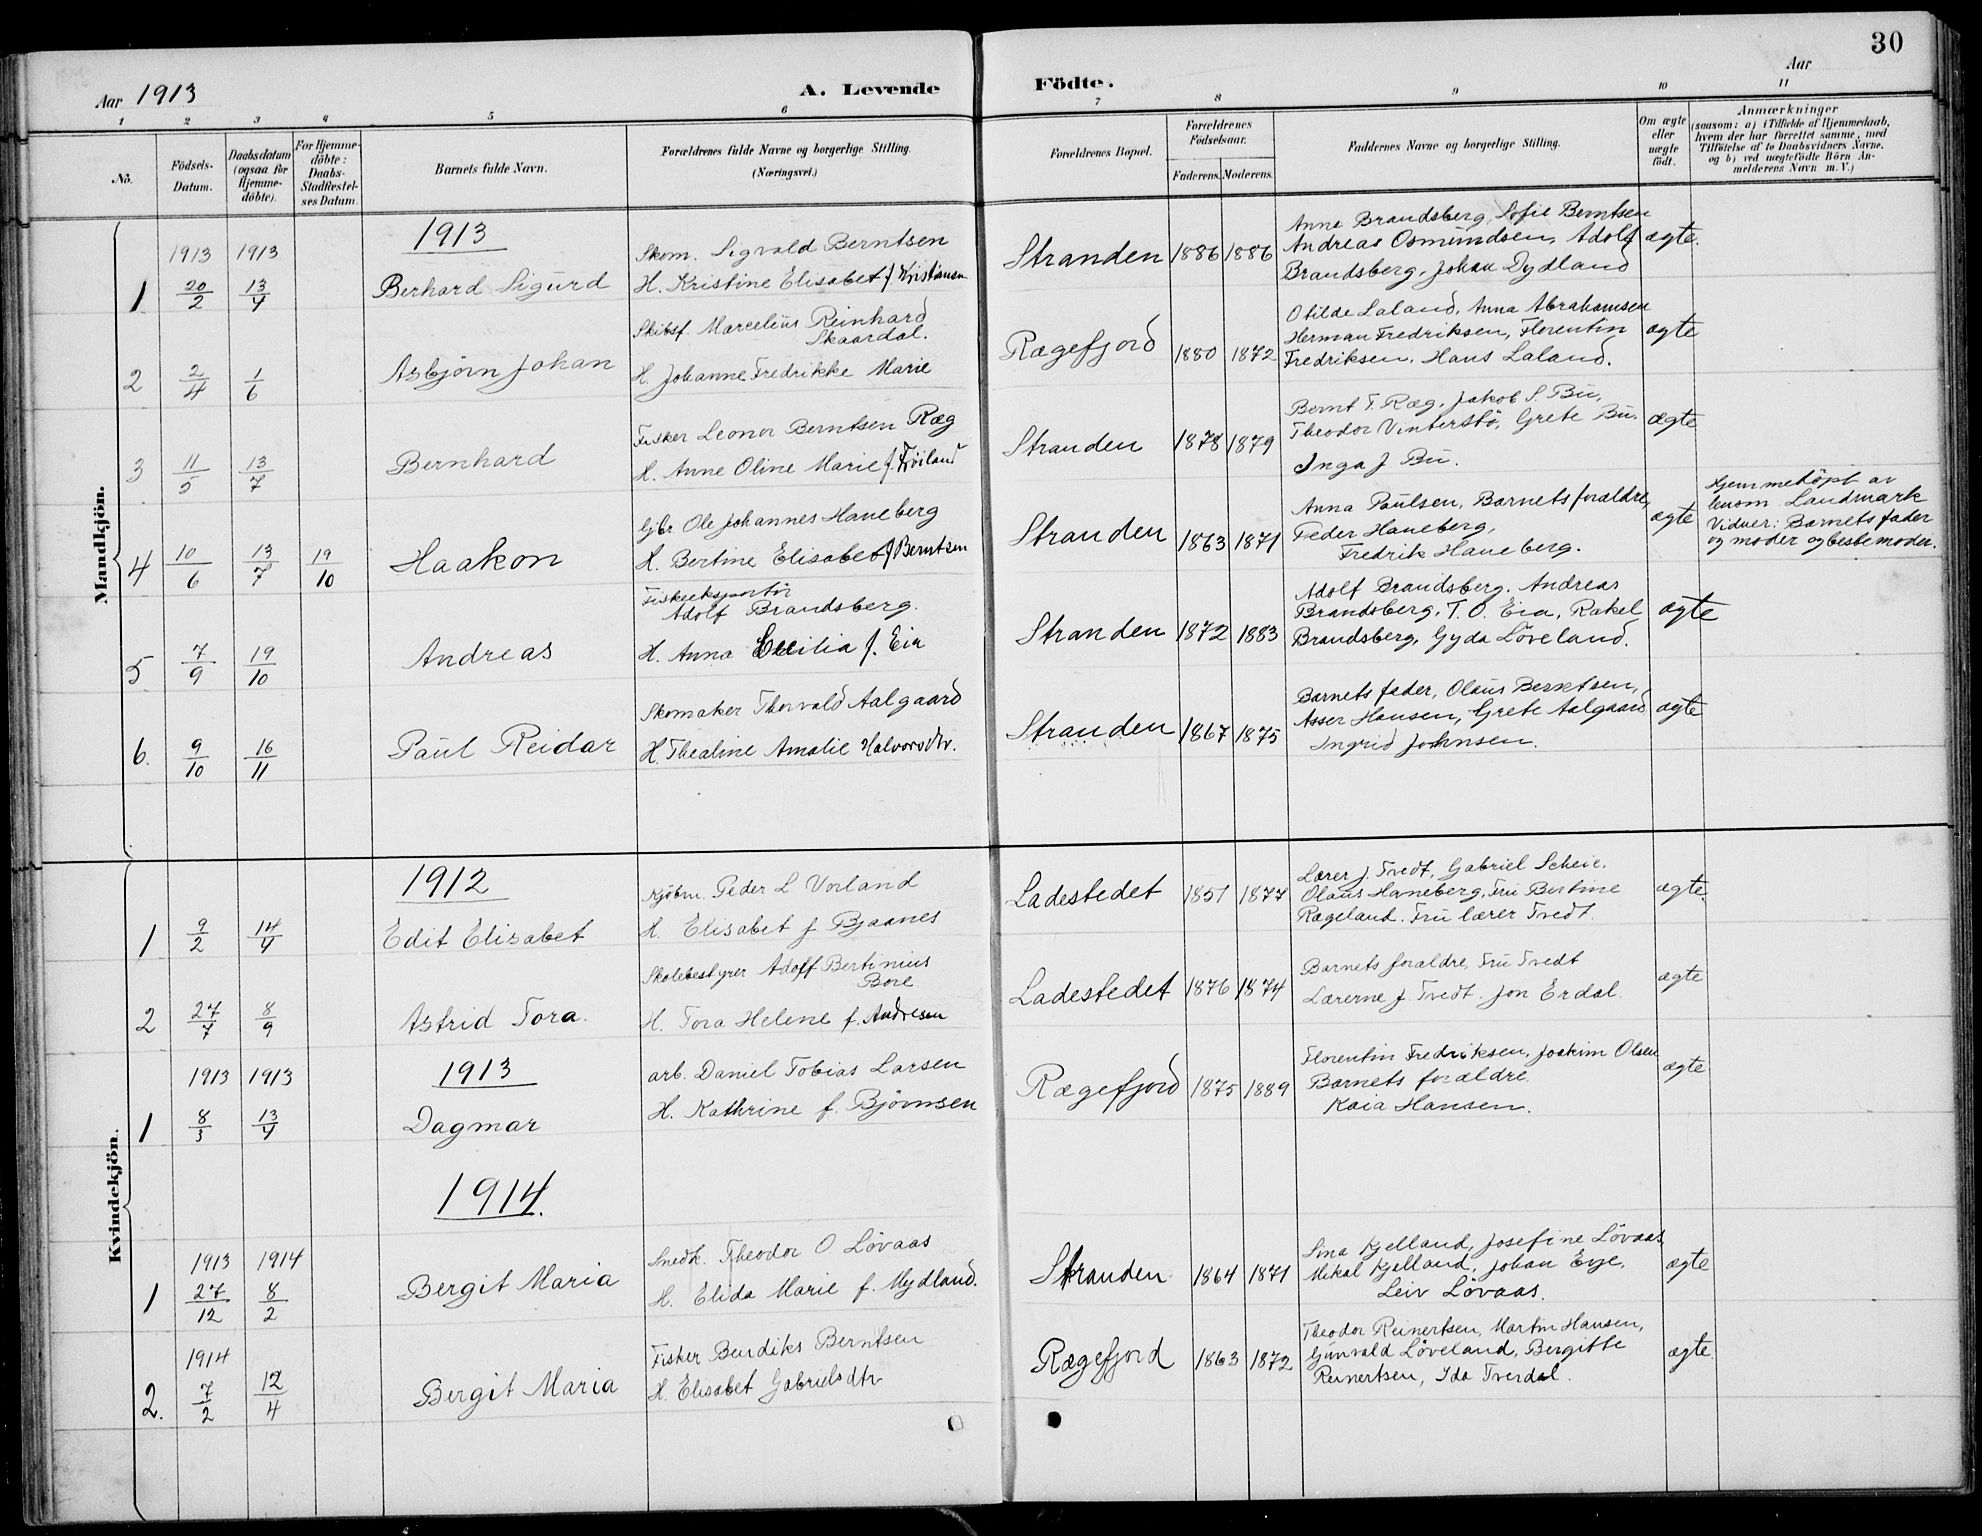 30
Aar 1913
A. Levende
Födte.
Aar
1 2 3 4 5 6 7 8 9 10 11
No.
Födsels-Datum.
Daabsdatum (ogsaa for Hjemme-döbte).
For Hjemme-döbte: Daabs-Stadfæstel-ses Datum.
Barnets fulde Navn.
Forældrenes fulde Navne og borgerlige Stilling.
(Næringsvei.)
Forældrenes Bopæl.
Forældrenes Födselsaar.
Faderens. Moderens.
Faddernes Navne og borgerlige Stilling.
Om ægte eller uægte födt.
Anmærkninger
(saasom: a) i Tilfælde af Hjemmedaab,
hvem der har forrettet samme, med
Tilföielse af to Daabsvidners Navne,
og b) ved uægtefödte Börn An-
melderens Navn m. V.)
Mandkjön.
1913 1913
1913
1 20/2 13/4 Berhard Sigurd
Skom. Sigvald Berntsen
H. Kristine Elisabet f. Kristiansen
Stranden 1886 1886
Anna Brandsberg, Sofie Berntsen
Andreas Osmundsen, Adolf
Brandsberg, Johan Dydland
ægte.
2 2/4 1/6 Asbjörn Johan
Skibsf. Marcelius Reinhard
Skaardal.
H. Johanne Fredrikke Marie
Rægefjord 1880 1872
Otilde Laland, Anna Abrahamsen
Herman Fredriksen, Florentin
Fredriksen. Hans Laland.
ægte
3 11/5 13/7 Bernhard
Fisker Leonor Berntsen Ræg
H. Anne Oline Marie f. Fröiland
Stranden 1878 1879
Bernt T. Ræg, Jakob S. Bu,
Theodor Vinterstö, Grete Bu.
Inga J Bu.
ægte
4 10/6 13/7 19/10 Haakon
Gjbr. Ole Johannes Haneberg
H. Bertine Elisabet f Berntsen
Stranden 1863 1871
Anna Paulsen, Barnets forældre,
Peder Haneberg,
Fredrik Haneberg.
ægte
Hjemmedöpt av
Landmark
Vidner: Barnets fader
og moder og bestemoder.
5 7/9 19/10 Andreas
Fiskeeksportör
Adolf Brandsberg.
H. Anna Cecilia f. Eia
Stranden 1872 1883
Adolf Brandsberg, Andreas
Brandsberg, T. O. Eia, Rakel
Brandsberg, Gyda Löveland.
ægte
6. 9/10 16/11 Paul Reidar
Skomaker Thorvald Aalgaard
H. Thealine Amalie Halvorsdtr.
Stranden 1867 1875
Barnets fader, Olaus Berntsen,
Asser Hansen, Grete Aalgaard
Ingrid Johnsen.
ægte
Kvindekjön.
1912
1 9/2 14/4 Edit Elisabet
Kjöbm. Peder L Vorland
H. Elisabet f Bjaanes
Ladestedet 1851 1877
Lærer J. Tvedt, Gabriel Scheie.
Olaus Haneberg, Fru Bertine
Rægeland. Fru lærer Tvedt.
ægte
2 27/7 8/9 Astrid Tora.
Skolebestyrer Adolf Bertinius
Bore
H. Tora Helene f. Andresen
Ladestedet 1876 1874
Barnets forældre, Fru Tvedt
Lærerne J. Tvedt. Jon Erdal.
ægte
1913 1913
1913
1 8/3 13/4 Dagmar
arb. Daniel Tobias Larsen
H. Kathrine f. Björnsen
Rægefjord 1875 1889
Florentin Fredriksen, Joakim Olsen
Barnets forældre.
Kaia Hansen.
ægte
1914.
1913 1914
1 27/12 8/2 Bergit Maria
Snedk. Theodor O Lövaas
H. Elida Marie f. Mydland.
Stranden 1864 1871
Sina Kjelland, Josefine Lövaas,
Mikal Kjelland, Johan Evje,
Leiv Lövaas.
ægte
1914
2. 7/2 12/4 Bergit Maria
Fisker Bendiks Berntsen
H. Elisabet Gabrielsdtr
Rægefjord 1863 1872
Theodor Reinertsen, Martin Hansen,
Gunvald Löveland, Bergitte
Reinertsen, Ida Tverdal.
ægte.